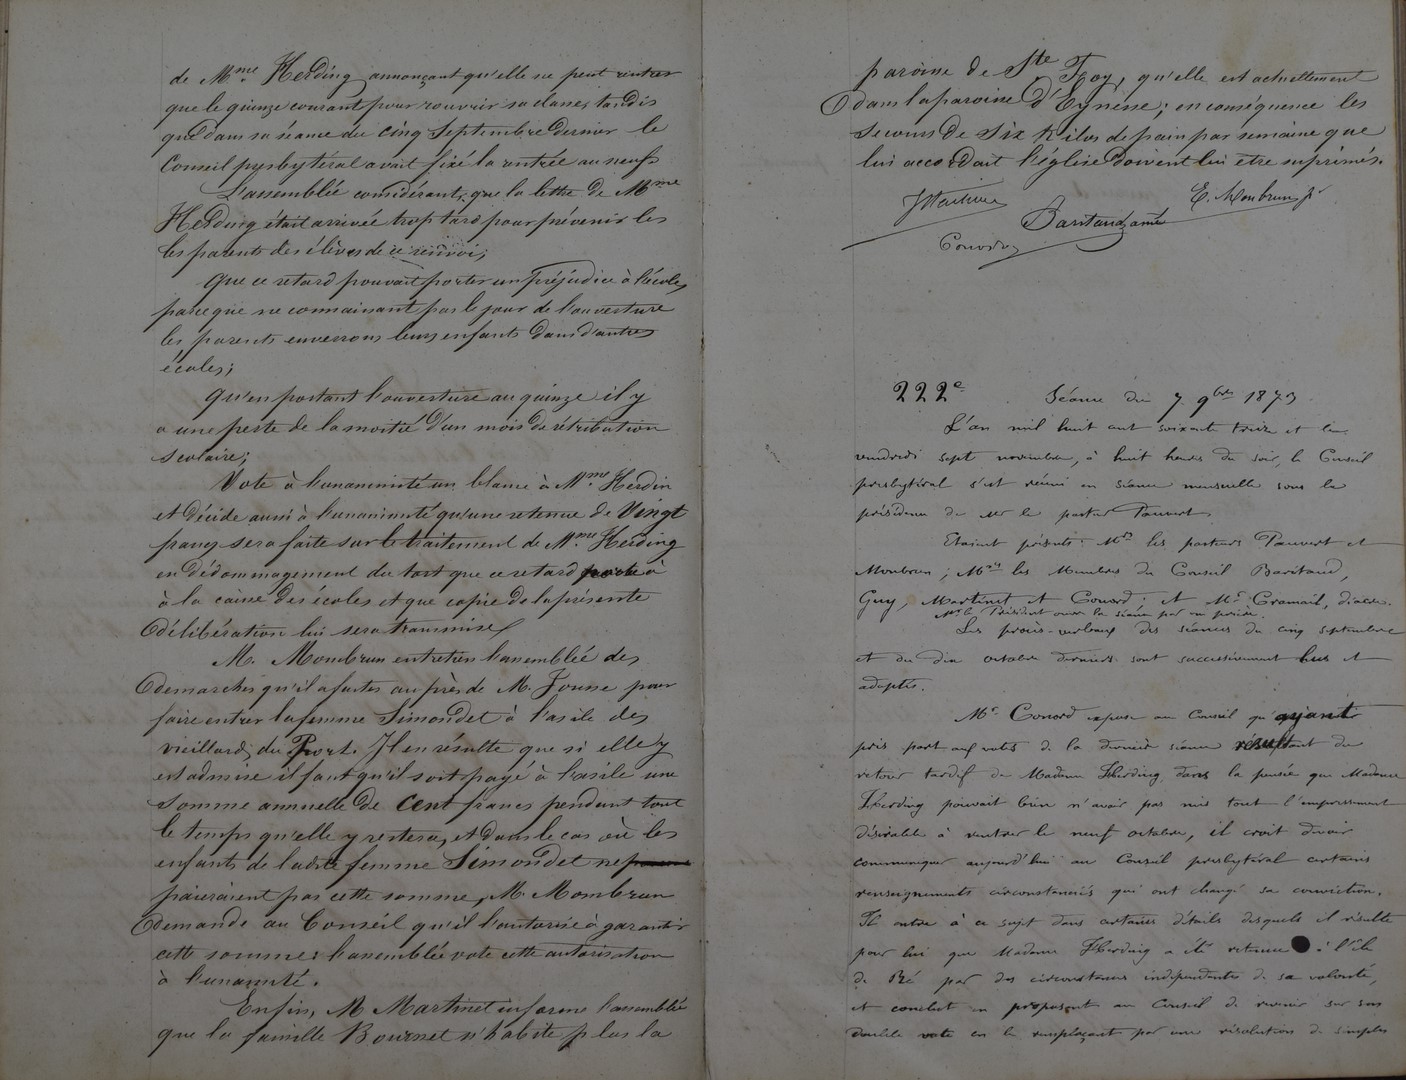 de Mme Herding annonçant qu'elle ne peut rentrer
que le quinze courant pour rouvrir sa classe, tandis
que dans sa séance du cinq Septembre dernier le
Conseil presbytéral avait fixé la rentrée au neuf
L'assemblée considérant, que la lettre de Mme
Herding était arrivée trop tard pour prévenir les
les parents des élèves de ce renvoi;
Que ce retard pouvait porter un préjudice à l'école,
parceque ne connaissant pas le jour de l'ouverture
les parents enverrons leurs enfants dans d'autres
écoles;
Qu'en portant l'ouverture au quinze il y
a une perte de la moitié d'un mois de rétribution
scolaire;
Vote à l'unanimité un blâme à Mme Herdin
et décide aussi à l'unanimité qu'une retenue de Vingt
francs sera faite sur le traitement de Mme Herding
en dédommagement du tort que ce retard porte à
à la caisse des écoles et que copie de la présente
délibération lui sera transmise
M. Mombrun entretien l'assemblée des
demarches qu'il a faites auprès de M. Jousse pour
faire entrer la femme Simondet à l'asile des
vieillards du Port. Il en résulte que si elle y
est admise il faut qu'il soit payé à l'asile une
somme annuelle de cent francs pendant tout
le temps qu'elle y restera, et dans le cas où les
enfants de ladite femme Simondet ne
paieraient pas cette somme, M. Mombrun
demande au Conseil qu'il l'autorise à garantir
cette somme: l'assemblée vote cette autorisation
à l'unanimité.
Enfin, M Martinet informe l'assemblée
que la famille Bournet n'habite plus la
paroisse de Ste Foy, qu'elle est actuellement
dans la paroisse d'Eynesse; en conséquence les
secours de six kilos de pain par semaine que
lui accordait l'église doivent lui être supprimés.
E. Monbrun Jr
Baritaud ainé
Conord
222e Séance du 7 9bre 1873.
L'an mil huit cent soixante treize et le
vendredi sept novembre, à huit heures du soir, le Conseil
presbytéral s'est réuni en séance mensuelle sous la
présidence de Mr le pasteur Pauvert.
Etaient présents: Mrs les pasteurs Pauvert et
Monbrun; Mrs les Membres du Conseil Baritaud,
Guy, Martinet et Conord; et Mr Cramail, diacre.
Mr le Président ouvre la séance par la prière.
Les procès-verbaux des séances du cinq septembre
et du dix octobre derniers sont successivement lus et
adoptés.
Mr Conord expose au Conseil qu'ayant
pris part aux votes de la dernière séance résultant du
retour tardif de Madame Herding, dans la pensée que Madame
Herding pouvait bien n'avoir pas mis tout l'empressement
désirable à rentrer le neuf octobre, il croit devoir
communiquer aujourd'hui au Conseil presbytéral certains
renseignements circonstanciés qui ont changé sa conviction.
Il entre à ce sujet dans certains détails desquels il résulte
pour lui que Madame Herding a été retenue à l'île
de Ré par des circonstances indépendantes de sa volonté,
et conclut en proposant au Conseil de revenir sur son
double vote en le remplaçant par une résolution de simples